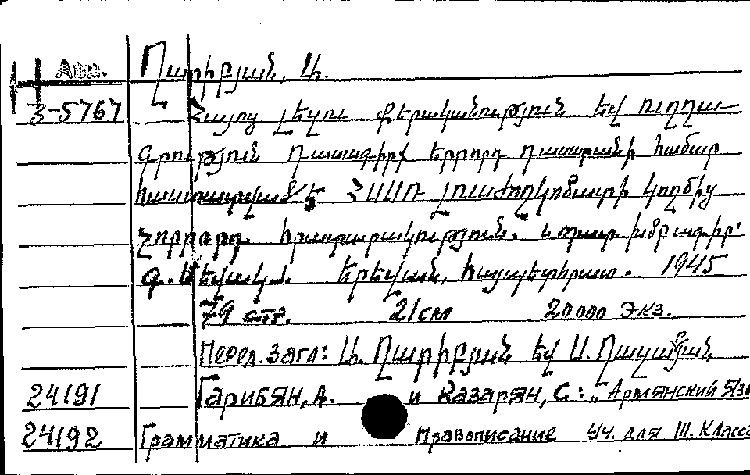 Арм. Ղարիբյան, Ա.
3-5767 Հայոց լեզու քերականություն եվ ուղղա-
գրություն դասագիրք երրորդ դասարանի համար
հաստատված է ՀՍՍՌ լուսժողկոմատի կողմից
չորրորդ հրատարակություն. պատ. խմբագիր՝
Գ. Սեվակ. Երեվան, հայպետհրատ. 1945
79 стр. 21 см 20000 экз.
Перед. загл: Ա. Ղարիբյան եվ Ս. Ղազարյան
24191 Гарибян, А. и Казарян, С.: „Армянский яз
24192 Грамматика и правописание уч. для III. класса